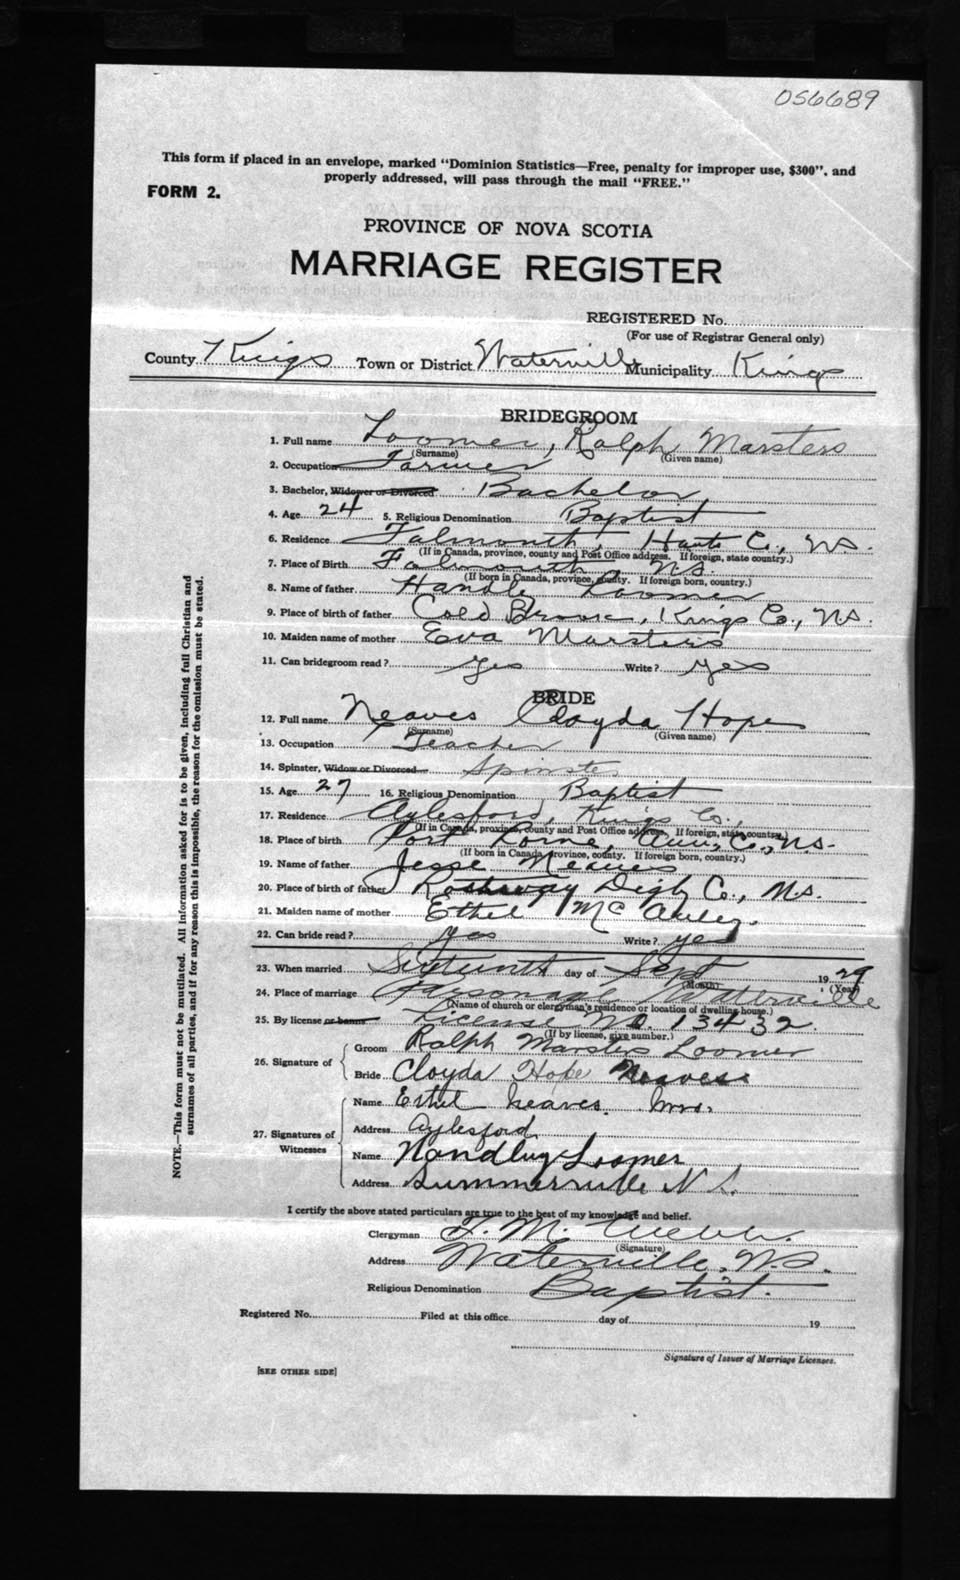 056689
This form if placed in an envelope, marked "Dominion Statistics—Free, penalty for improper use, $300", and
properly addressed, will pass through the mail "FREE."
FORM 2.
PROVINCE OF NOVA SCOTIA
MARRIAGE REGISTER
REGISTERED No.
(For use of Registrar General only)
County Kings Town or District Waterville Municipality Kings
BRIDEGROOM
1. Full name Loomer, Ralph Marsters
(Surname) (Given name)
2. Occupation Farmer
3. Bachelor, Widower or Divorced Bachelor,
4. Age 24 5. Religious Denomination Baptist
6. Residence Falmouth, Hants Co., N.S.
(If in Canada, province, county and Post Office address. If foreign, state country.)
7. Place of Birth Falmouth N.S.
(If born in Canada, province, county. If foreign born, country.)
8. Name of father Handley Loomer
9. Place of birth of father Cold Brook, Kings Co., N.S.
10. Maiden name of mother Eva Marsters
11. Can bridegroom read? Yes Write? Yes
BRIDE
12. Full name Neaves Cloyda Hope
(Surname) (Given name)
13. Occupation Teacher
14. Spinster, Widow or Divorced Spinster
15. Age 27 16. Religious Denomination Baptist
17. Residence Aylesford, Kings Co.,
(If in Canada, province, county and Post Office address, If foreign, state country.)
18. Place of birth Port Lorne, Ann. Co., N.S.
(If born in Canada, province, county. If foreign born, country.)
19. Name of father Jesse Neaves
20. Place of birth of father Rossway Digby Co., N.S.
21. Maiden name of mother Ethel McAuley.
22. Can bride read? yes Write? yes
23. When married Sixteenth day of Sept 1929
(Month) (Year)
24. Place of marriage Parsonage Waterville
(Name of church or clergyman's residence or location of dwelling house.)
25. By license or banns License No. 13432.
(If by license, give number.)
26. Signature of
Groom Ralph Marsters Loomer
Bride Cloyda Hope Neaves
27. Signatures of Witnesses
Name Ethel Neaves. Mrs.
Address Aylesford
Name Handley Loomer
Address Summerville N.S.
I certify the above stated particulars are true to the best of my knowledge and belief.
Clergyman Webb.
(Signature)
Address Waterville, N.S.
Religious Denomination Baptist.
Registered No. Filed at this office day of 19
Signature of Issuer of Marriage Licenses.
[SEE OTHER SIDE]
NOTE.—This form must not be mutilated. All information asked for is to be given, including full Christian and
surnames of all parties, and if for any reason this is impossible, the reason for the omission must be stated.